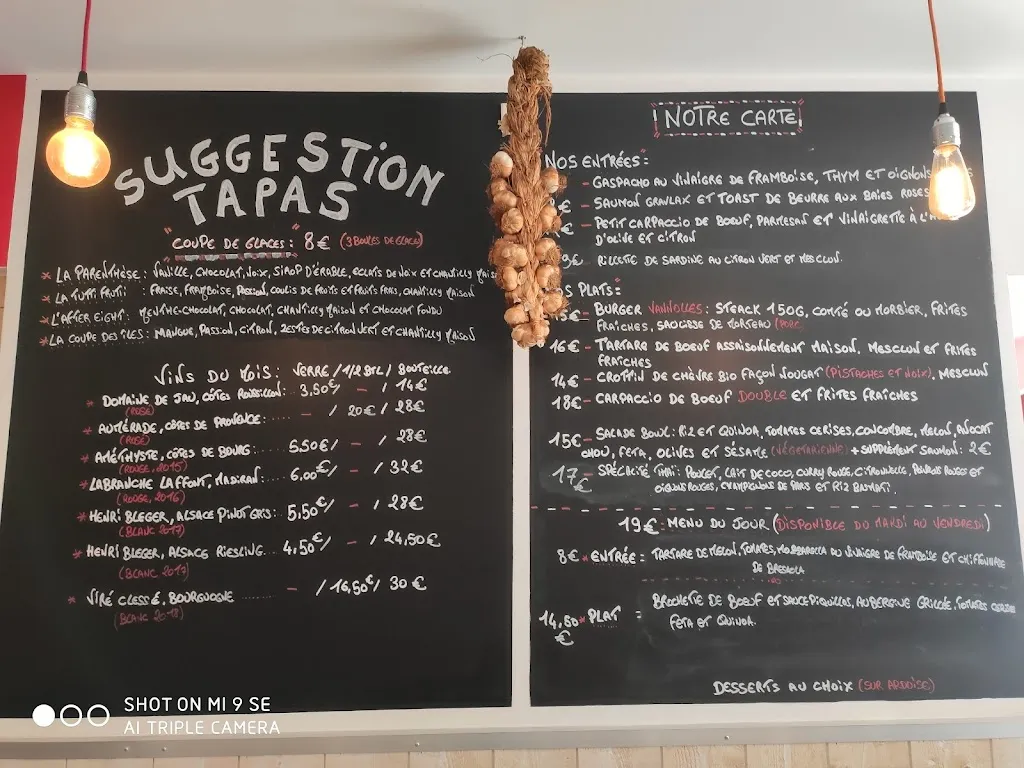 SUGGESTION
TAPAS
"COUPE DE GLACES": 8€ (3 BOULES DE GLACES)
* LA PARENTHÈSE : VANILLE, CHOCOLAT, NOIX, SIROP D'ÉRABLE, ECLATS DE NOIX ET CHANTILLY MAISON
* LA TUTTI FRUTTI : FRAISE, FRAMBOISE, PASSION, COULIS DE FRUITS ET FRUITS FRAIS, CHANTILLY MAISON
* L'AFTER EIGHT : MENTHE-CHOCOLAT, CHOCOLAT, CHANTILLY MAISON ET CHOCOLAT FONDU
* LA COUPE DES ILES : MANGUE, PASSION, CITRON, ZESTES DE CITRON VERT ET CHANTILLY MAISON
VINS DU MOIS : VERRE / 1/2 BTL / BOUTEILLE
* DOMAINE DE JAU, CÔTES ROUSSILLON : 3,50€/ - / 14€
(ROSÉ)
* AUMÉRADE, CÔTES DE PROVENCE : - / 20€ / 28€
(ROSÉ)
* AMÉTHYSTE, CÔTES DE BOURG : 5.50€/ - / 28€
(ROUGE, 2015)
* LABRANCHE LAFFONT, MADIRAN : 6.00€/ - / 32€
(ROUGE, 2016)
* HENRI BLEGER, ALSACE PINOT GRIS : 5,50€/ - / 28€
(BLANC 2017)
* HENRI BLEGER, ALSACE RIESLING... 4,50€/ - / 24,50€
(BLANC 2017)
* VIRÉ CLESSÉ, BOURGOGNE - / 16,50€/ 30€
(BLANC 2018)
NOTRE CARTE
NOS ENTRÉES :
- GASPACHO AU VINAIGRE DE FRAMBOISE, THYM ET OIGNONS
€ - SAUMON GRAVLAX ET TOAST DE BEURRE AUX BAIES ROSES
€ - PETIT CARPACCIO DE BOEUF, PARMESAN ET VINAIGRETTE À L'
D'OLIVE ET CITRON
9€ - RILLETTE DE SARDINE AU CITRON VERT ET MESCLUN.
OS PLATS :
15€ - BURGER VANNOLLES : STEACK 150G, COMTÉ OU MORBIER, FRITES
FRAICHES, SAUCISSE DE MORTEAU (PORC)
16€ - TARTARE DE BOEUF ASSAISONNEMENT MAISON, MESCLUN ET FRITES
FRAÎCHES
14€ - CROTTIN DE CHÈVRE BIO FAÇON NOUGAT (PISTACHES ET NOIX), MESCLUN
18€ - CARPACCIO DE BOEUF DOUBLE ET FRITES FRAÎCHES
15€ - SALADE BOWL : RIZ ET QUINOA, TOMATES CERISES, CONCOMBRE, MELON, AVOCAT
CHOU, FETA, OLIVES ET SÉSAME (VÉGÉTARIENNE) + SUPPLÉMENT SAUMON : 2€
17€ - SPÉCIALITÉ THAÏ : POULET, LAIT DE COCO, CURRY ROUGE, CITRONNELLE, POIVRONS ROUGES ET
OIGNONS ROUGES, CHAMPIGNONS DE PARIS ET RIZ BASMATI.
19€ : MENU DU JOUR (DISPONIBLE DU MARDI AU VENDREDI)
8€ * ENTRÉE : TARTARE DE MELON, TOMATES, MOZZARELLA AU VINAIGRE DE FRAMBOISE ET CHIFFONNADE
DE BRESAOLA
14,80€ * PLAT = BROCHETTE DE BOEUF ET SAUCE PIQUILLOS, AUBERGINE GRILLÉE, TOMATES CERISE
FETA ET QUINOA.
DESSERTS AU CHOIX (SUR ARDOISE)
SHOT ON MI 9 SE
AI TRIPLE CAMERA